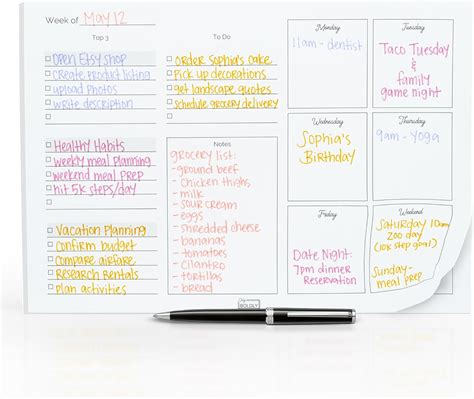 Week of May 12
Top 3
Open Etsy shop
Create product listing
upload photos
write description
Healthy Habits
weekly meal planning
weekend meal prep
hit 5k steps/day
Vacation Planning
Confirm budget
Compare airfare
Research Rentals
Plan activities
To Do
order Sophia's cake
Pick up decorations
get landscape quotes
Schedule grocery delivery
Notes
grocery list:
- ground beef
- chicken thighs
- milk
- sour cream
- eggs
- shredded cheese
- bananas
- tomatoes
- cilantro
- tortillas
- bread
Monday
11am - dentist
Tuesday
Taco Tuesday
&
family
game night
Wednesday
Sophia's
Birthday
Thursday
9am - yoga
Friday
Date Night:
7pm dinner
Reservation
Weekend
Saturday 10am
zoo day
(10k step goal)
Sunday-
meal prep
BOLDLY